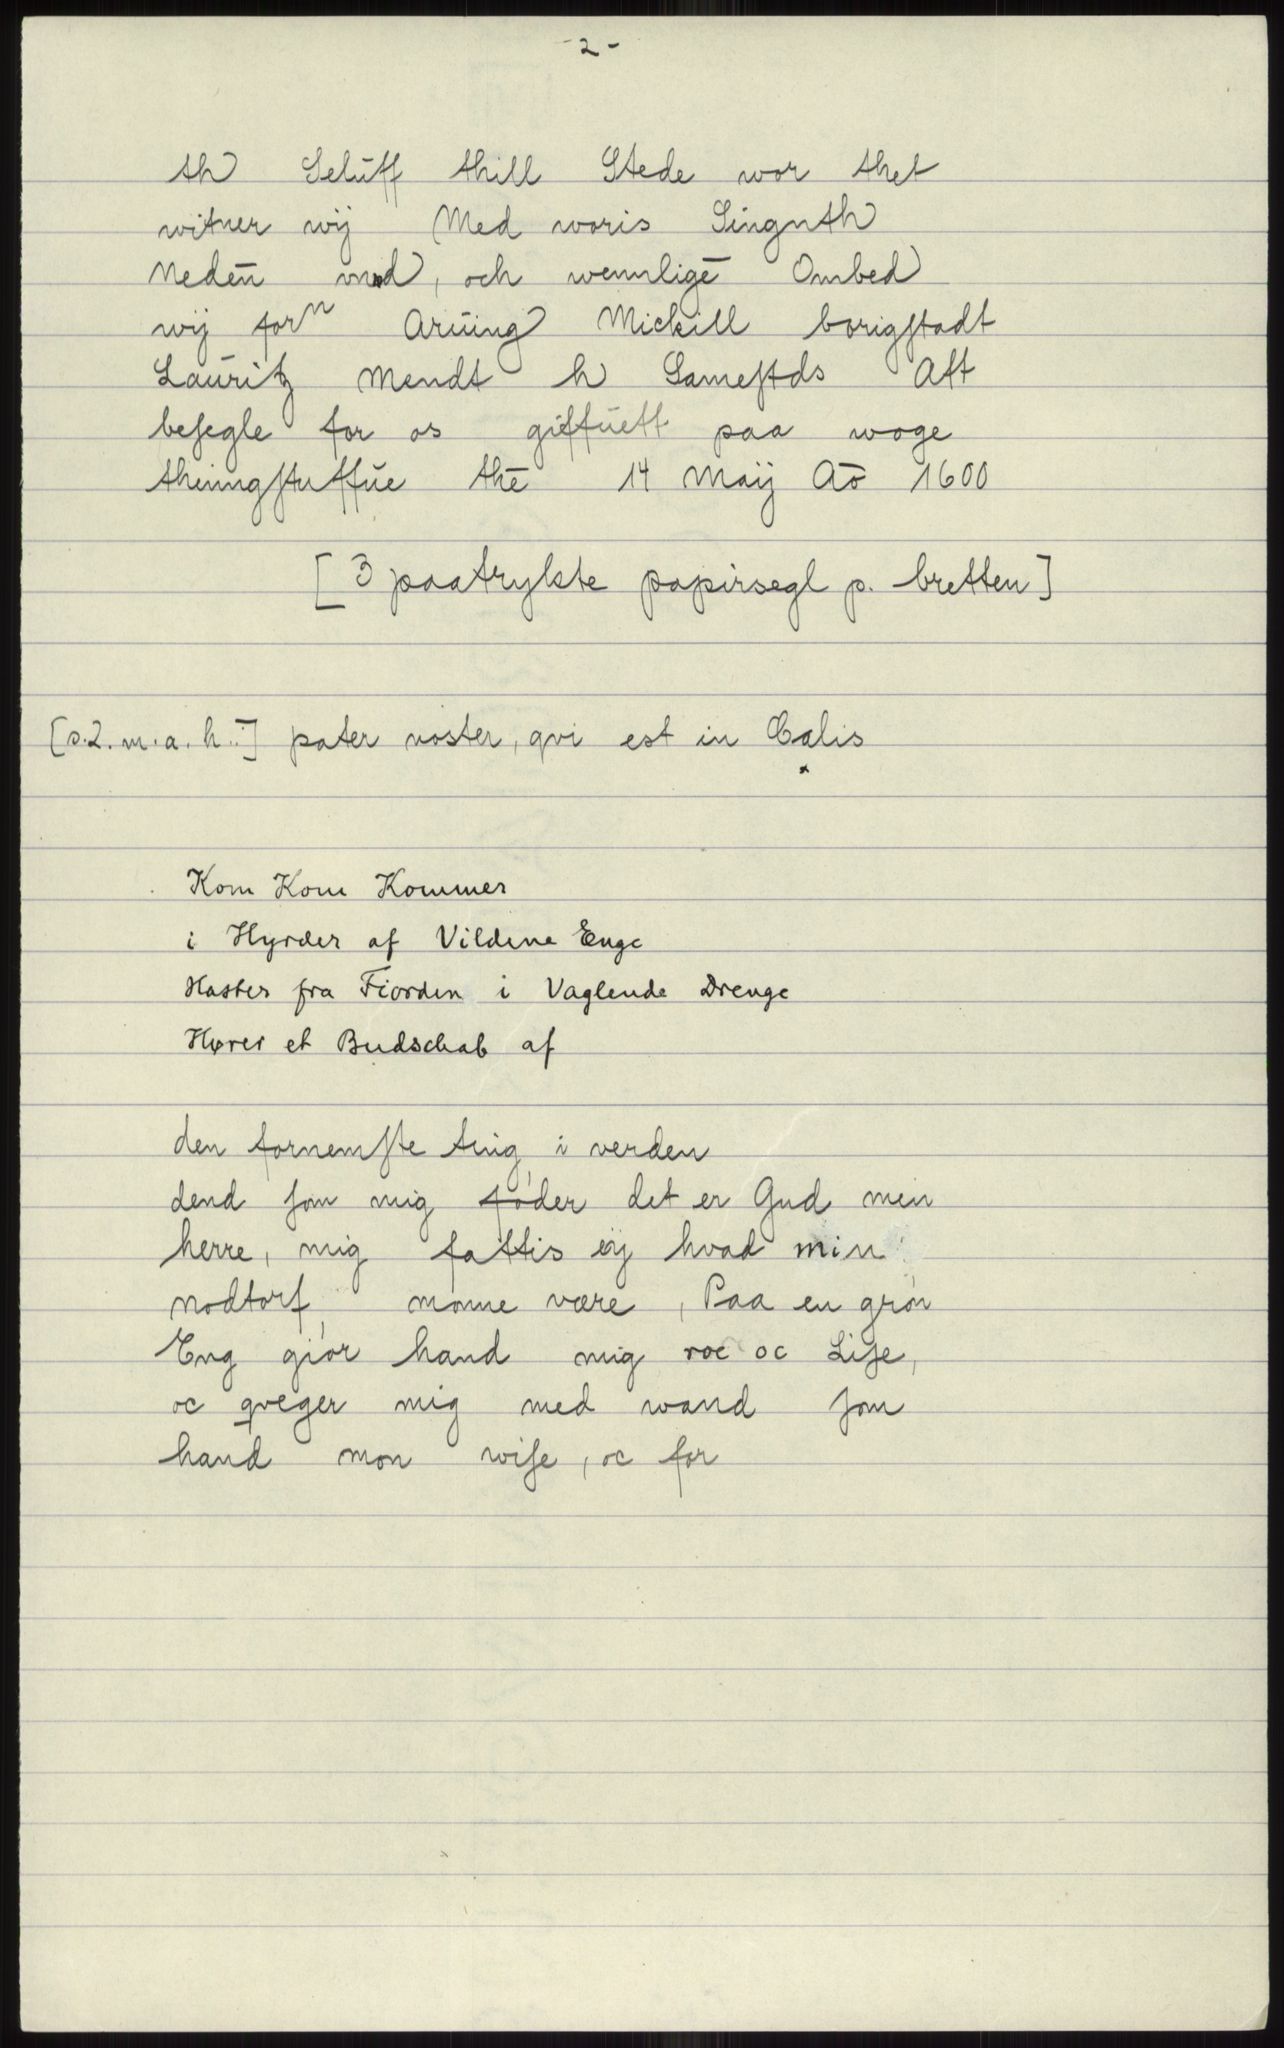 - 2 -
th Selüff thill Stede wor thet
witner wij Med woris Singnth
Nedēn vnd, och wennligē Ombed
wij forⁿ Arüing Mickill borigstadt
Lauritz Mendt h Samestds Att
besegle for os giffüett paa woge
thinngstuffüe thē 14 Maij Aō 1600
[3 paatrykte papirsegl p. bretten]
[s.2. m. a. h.:] pater noster, qvi est in Cælis
Kom Kom Kommer
i Hyrder af Vildene Enge
Haster fra Fiorden i Vaglende Drenge
Hører et Budschab af
den fornemste ting i verden
dend som mig føder det er Gud min
herre, mig fattis ey hvad min
nodtorf, monne være, Paa en grøn
Eng giør hand mig roe oc Lise,
oc qveger mig med wand som
hand mon wise, oc for